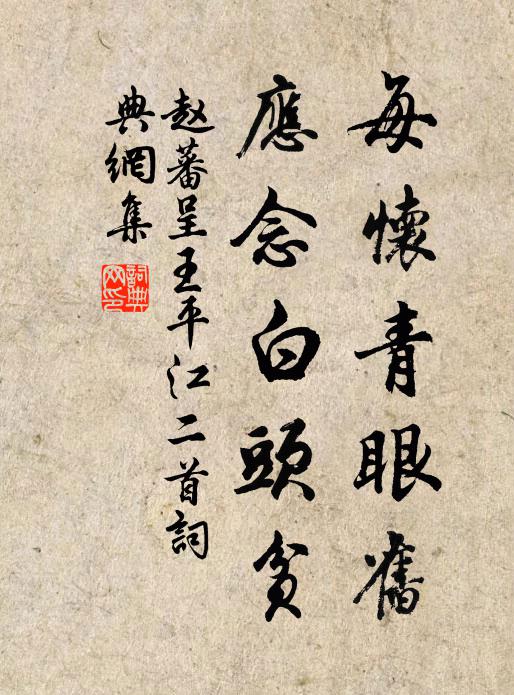 每懷青眼舊
應念白頭貧
赵蕃呈王平江二首詞
典網集
詞典網印